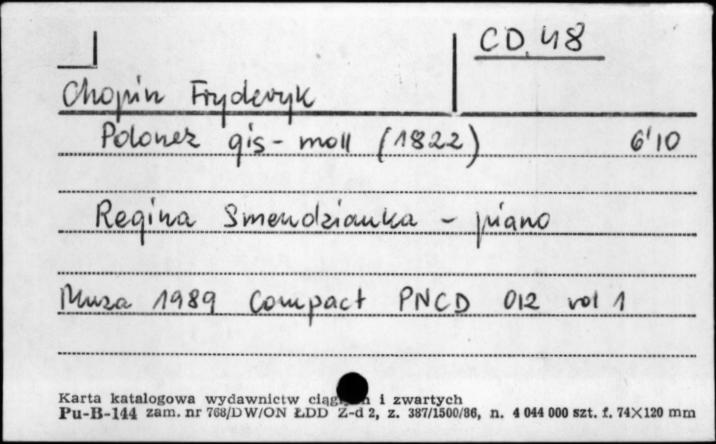 CD.48
Chopin Fryderyk
Polonez gis-moll (1822) 6'10
Regina Smendzianka - piano
Muza 1989 Compact PNCD 012 vol 1
Karta katalogowa wydawnictw i zwartych
Pu-B-144 zam. nr 768/DW/ON ŁDD Z-d 2, z. 387/1500/86, n. 4 044 000 szt. f. 74×120 mm